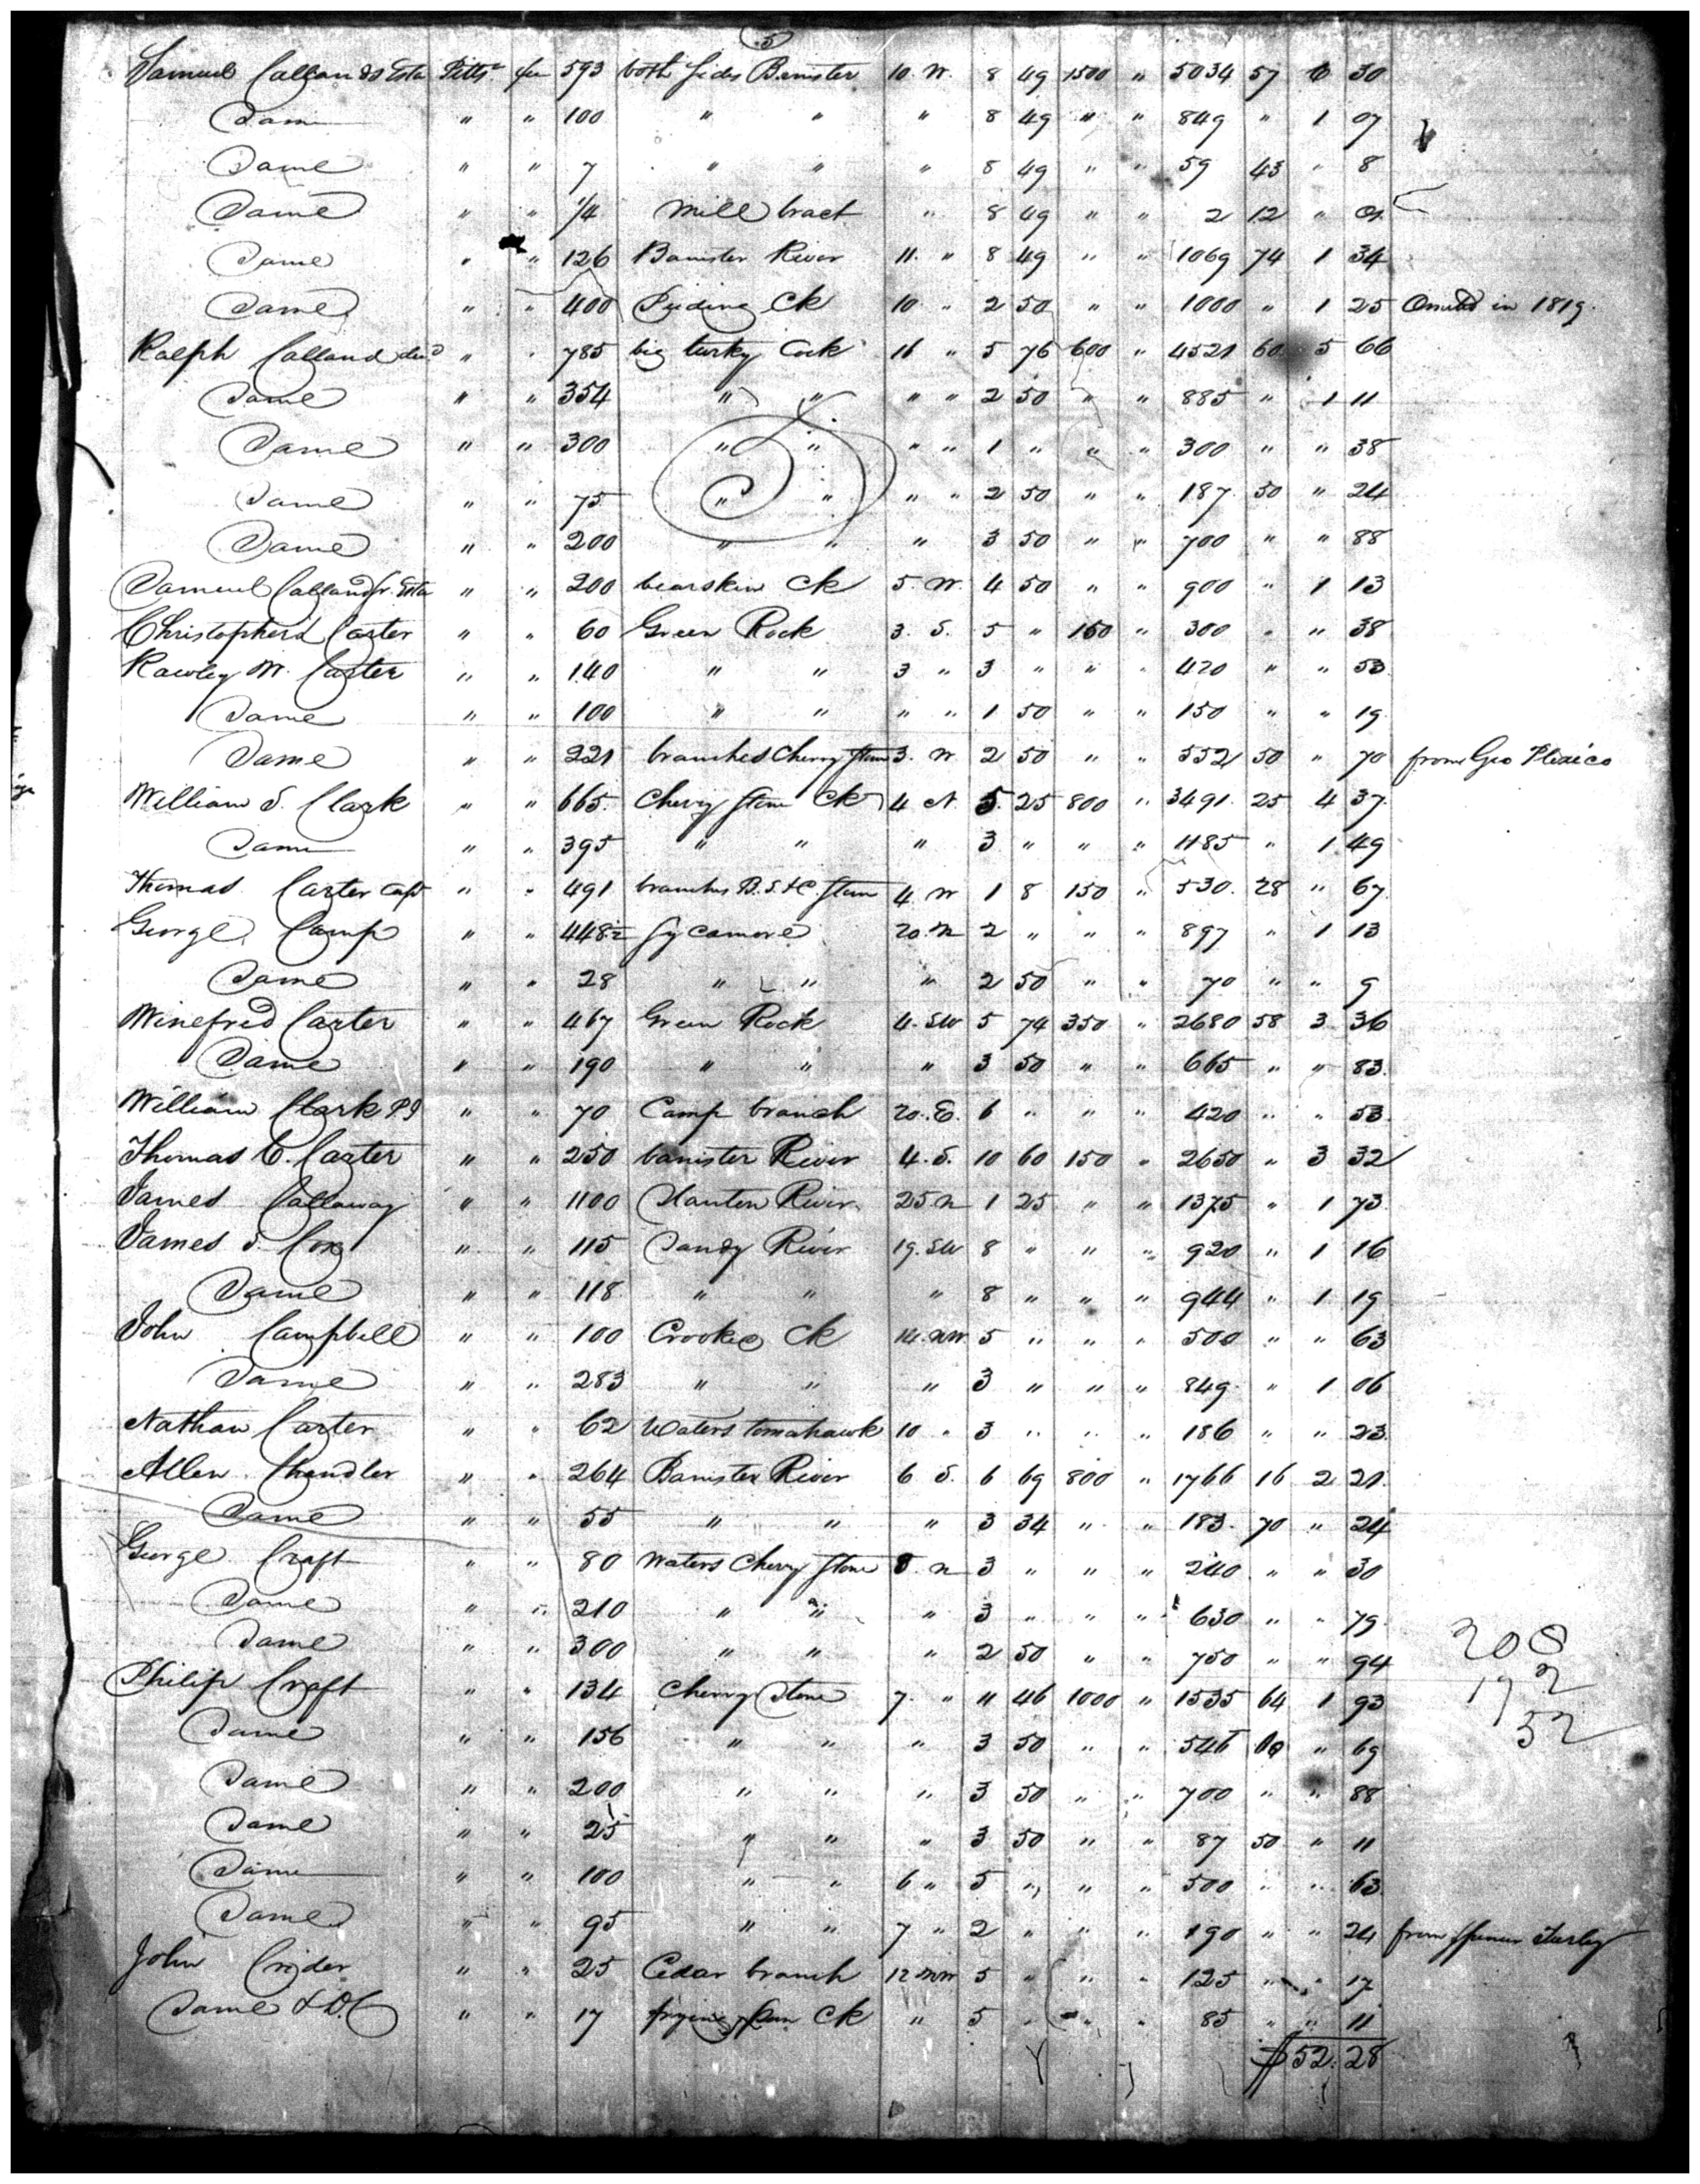 5
Samuel Callands Esta Pitts. fee 593 both sides Banister 10. W. 8 49 1500 " 5034 57 6 30
Same " " 100 " " " 8 49 " " 849 " 1 07
Same " " 7 " " " 8 49 " " 59 43 " 8
Same " " 1/4 Mill tract " 8 49 " " 2 12 "
Same " " 126 Banister River 11. " 8 49 " " 1069 74 1 34
Same " " 400 Puding Ck 10 " 2 50 " " 1000 " 1 25 Omitted in 1819.
Ralph Calland decd " " 785 big turky Cock 16 " 5 76 600 " 4521 60 5 66
Same " " 354 " " " " 2 50 " " 885 " 1 11
Same " " 300 " " " " 1 " " " 300 " " 38
Same " " 75 " " " " 2 50 " " 187 50 " 24
Same " " 200 " " " 3 50 " " 700 " " 88
Samuel Calland Jr. Esta " " 200 bearskin Ck 5. W. 4 50 " " 900 " 1 13
Christopher Carter " " 60 Green Rock 3. S. 5 " 150 " 300 " " 38
Rawley W. Carter " " 140 " " 3 " 3 " " " 420 " " 53
Same " " 100 " " " " 1 50 " " 150 " " 19
Same " " 221 branches Cherry Stone 3. W 2 50 " " 552 50 " 70 from Geo
William S. Clark " " 665. Cherry Stone Ck 4 N. 5. 25 800 " 3491. 25 4 37.
Same " " 395 " " " 3 " " " 1185 " 1 49
Thomas Carter Capt " " 491 branches B. S. & C. Stone 4 W 1 8 150 " 530. 28 " 67.
George Camp " " 448½ Sycamore 20. N 2 " " " 897 " 1 13
Same " " 28 " " " 2 50 " " 70 " " 9
Winefred Carter " " 467 Green Rock 4. SW 5 74 350 " 2680 58 3 36
Same " " 190 " " " 3 50 " " 665 " " 83.
William Clark P " " 70 Camp branch 20. E. 6 " " " 420 " " 53.
Thomas C. Carter " " 250 banister River 4. S. 10 60 150 " 2650 " 3 32
James Callaway " " 1100 Stanton River. 25 N 1 25 " " 1375 " 1 73.
James S. Cox " " 115 Sandy River 19. SW 8 " " " 920 " 1 16
Same " " 118 " " " 8 " " " 944 " 1 19
John Campbell " " 100 Crooked Ck 14. NW 5 " " " 500 " " 63
Same " " 283 " " " 3 " " " 849. " 1 06
Nathan Carter " " 62 Waters tomahawk 10 " 3 " " " 186 " " 23.
Allen Chandler " " 264 Banister River 6 S. 6 69 800 " 1766 16 2 21.
Same " " 55 " " " 3 34 " " 183. 70 " 24
George Craft " " 80 Waters Cherry Stone 8. N 3 " " " 240 " " 30
Same " " 210 " " " 3 " " " 630 " " 79.
Same " " 300 " " " 2 50 " " 750 " " 94
Philip Craft " " 134 Cherry Stone 7. " 11 46 1000 " 1535 64 1 93
Same " " 156 " " " 3 50 " " 546 " 69
Same " " 200 " " " 3 50 " " 700 " " 88
Same " " 25 " " " 3 50 " " 87 50 " 11
Same " " 100 " " 6 " 5 " " " 500 " " 63
Same " " 95 " " 7 " 2 " " " 190 " " 24 from
John Crider " " 25 Cedar branch 12 NW 5 " " " 125 " " 17
Same & D C " " 17 frying pan Ck " 5 " " " 85 " " 11
$52. 28
208
172
52